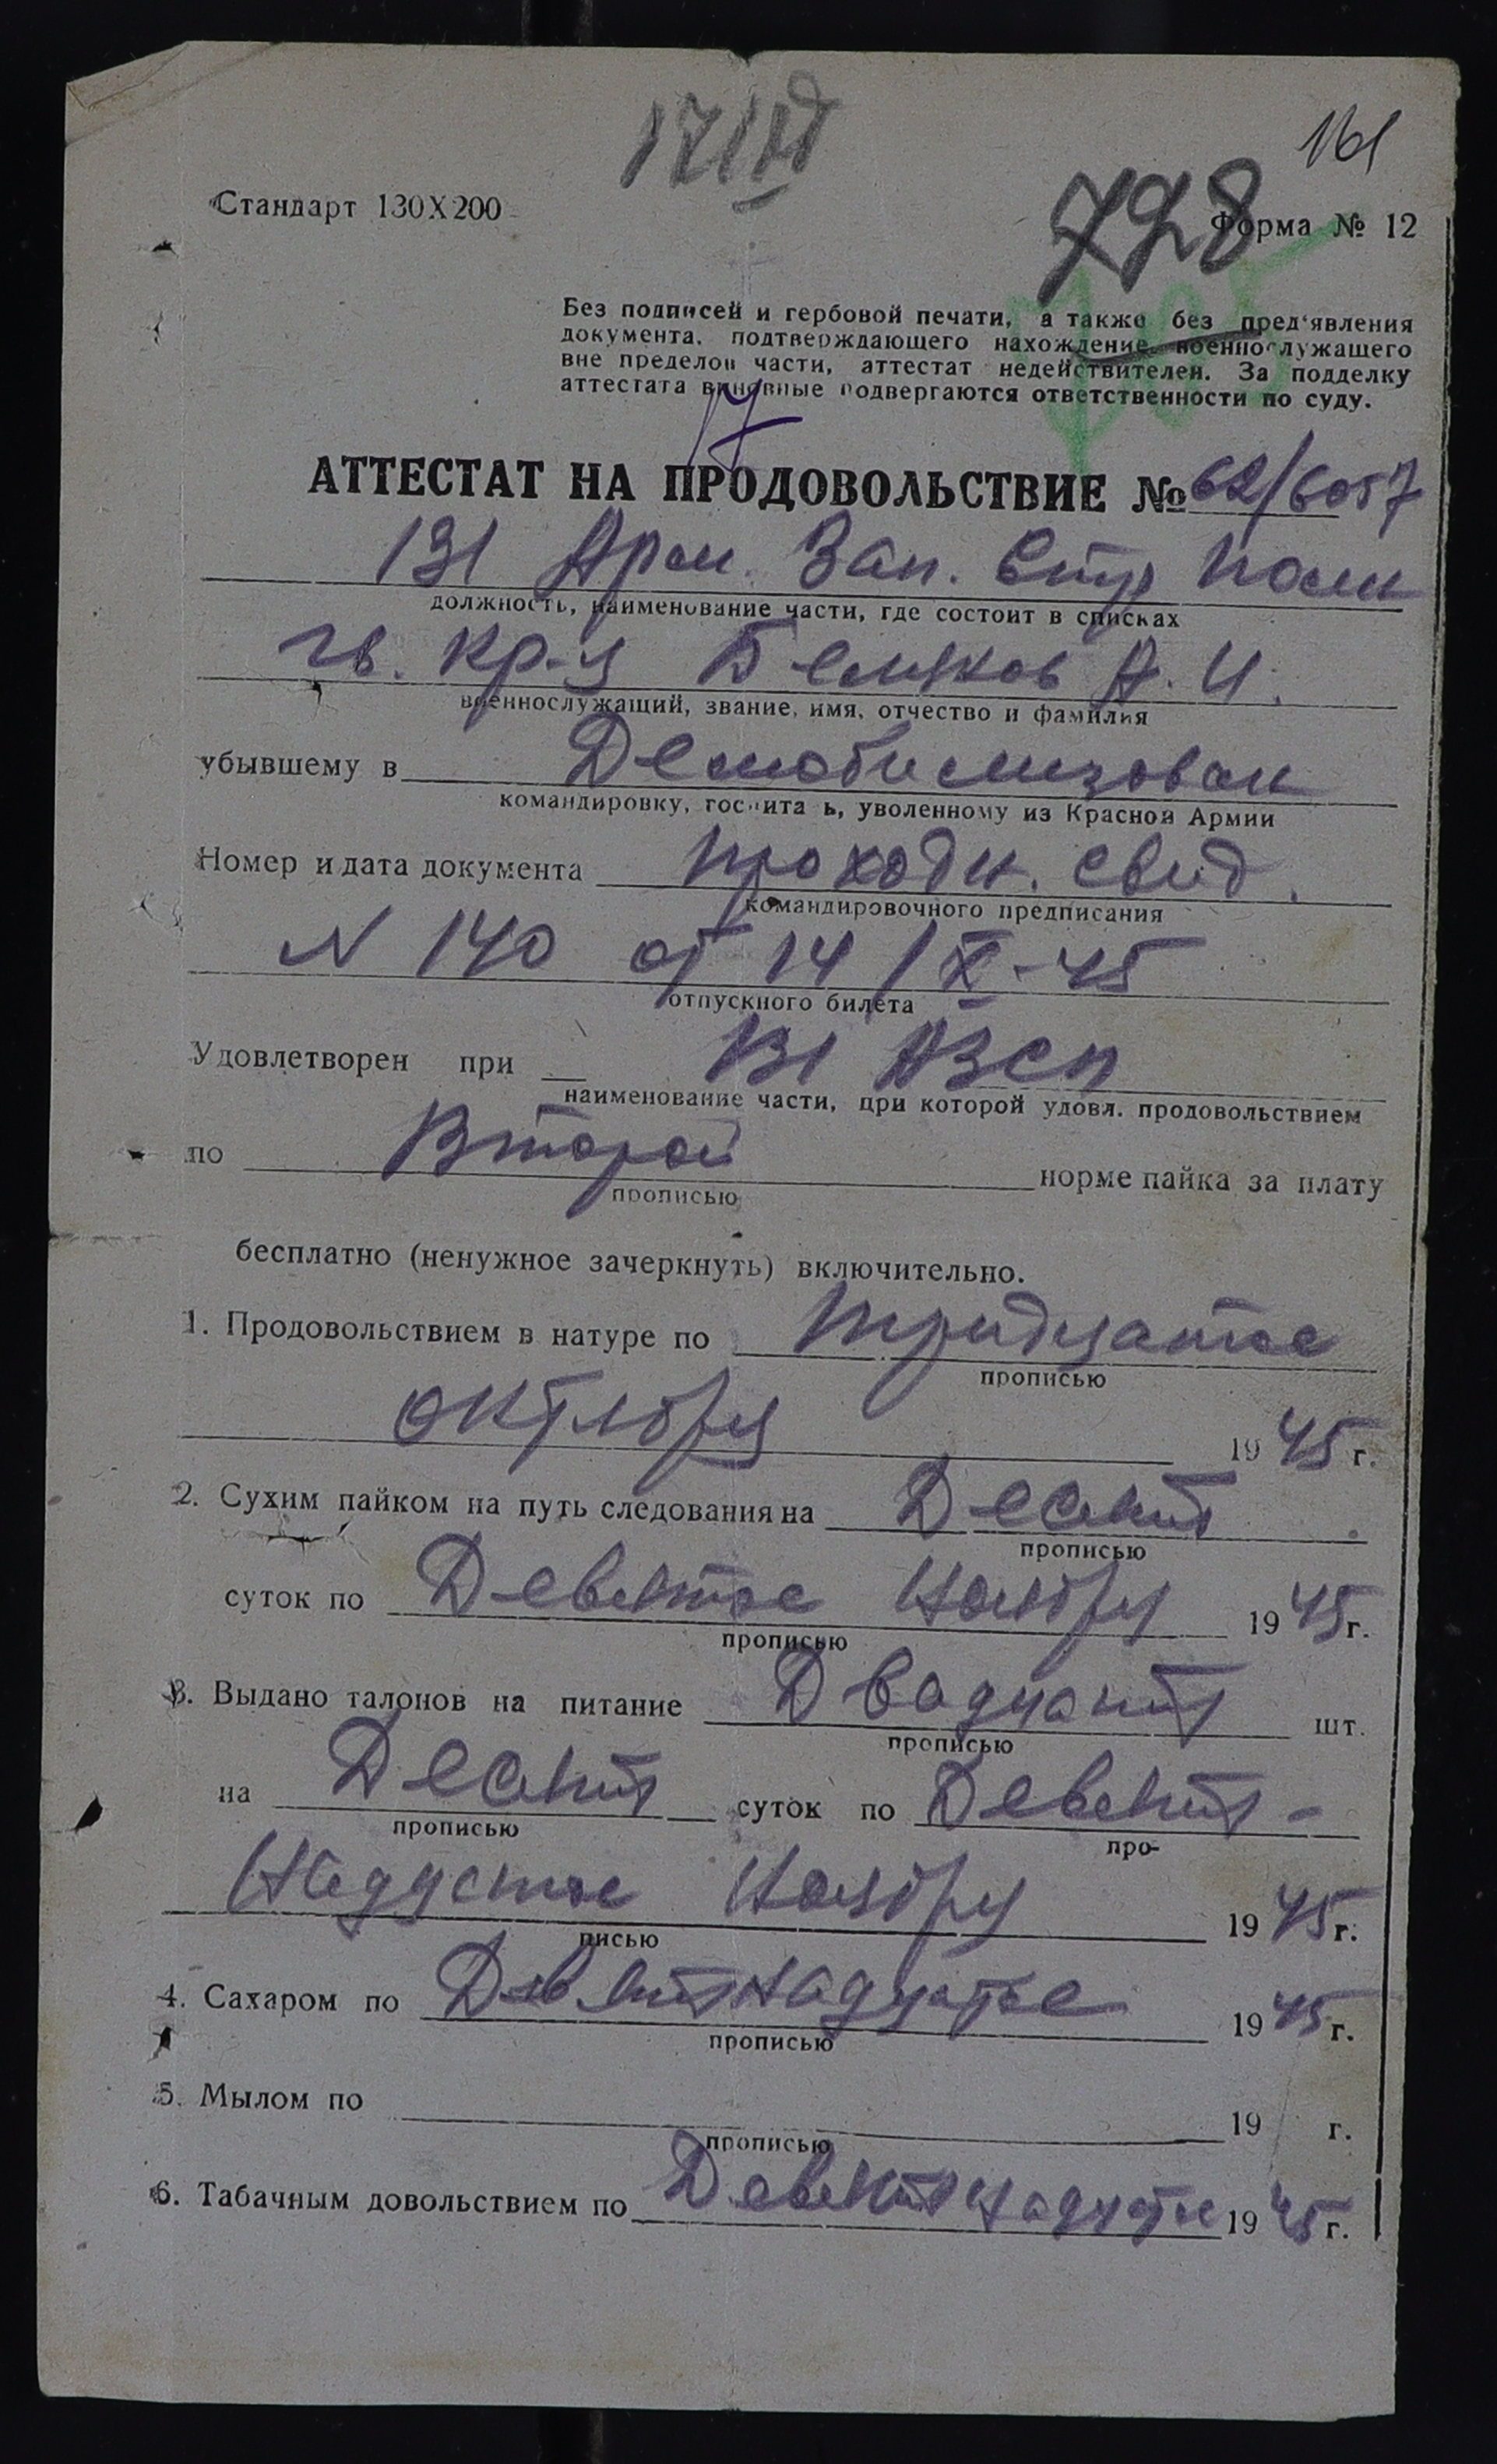 161
728
Стандарт 130X200
Форма № 12
Без подписей и гербовой печати, а также без пред'явления
документа, подтверждающего нахождение военнослужащего
вне пределов части, аттестат недействителен. За подделку
аттестата виновные подвергаются ответственности по суду.
АТТЕСТАТ НА ПРОДОВОЛЬСТВИЕ № 62/6057
131 Арм. Зап. Стр Полк
должность, наименование части, где состоит в списках
гв. Кр-ц Беляков А. И.
военнослужащий, звание, имя, отчество и фамилия
убывшему в Демобилизован
командировку, госпиталь, уволенному из Красной Армии
Номер и дата документа проходн. свид.
командировочного предписания
N 140 от 14/X-45
отпускного билета
Удовлетворен при 131 АЗСП
наименование части, при которой удовл. продовольствием
по Второй норме пайка за плату
прописью
бесплатно (ненужное зачеркнуть) включительно.
1. Продовольствием в натуре по тридцатое
прописью
октября 1945 г.
2. Сухим пайком на путь следования на Десять
прописью
суток по Девятое Ноября 1945 г.
прописью
3. Выдано талонов на питание Двадцать шт.
прописью
на Десять суток по Девять-
прописью про-
надцатое Ноября 1945 г.
писью
4. Сахаром по Девятнадцатое 1945 г.
прописью
5. Мылом по 19 г.
прописью
6. Табачным довольствием по Девятнадцатое 1945 г.